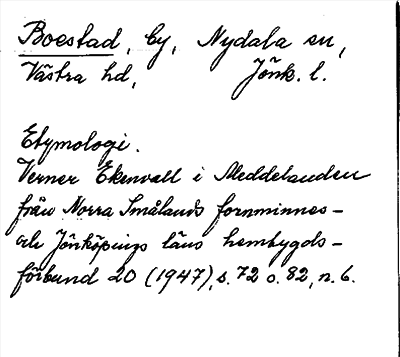 Boestad, by, Nydala sn,
Västra hd, Jönk. l.
Etymologi.
Verner Ekenvall i Meddelanden
från Norra Smålands fornminnes-
och Jönköpings läns hembygds-
förbund 20 (1947), s. 72 o. 82, n. 6.